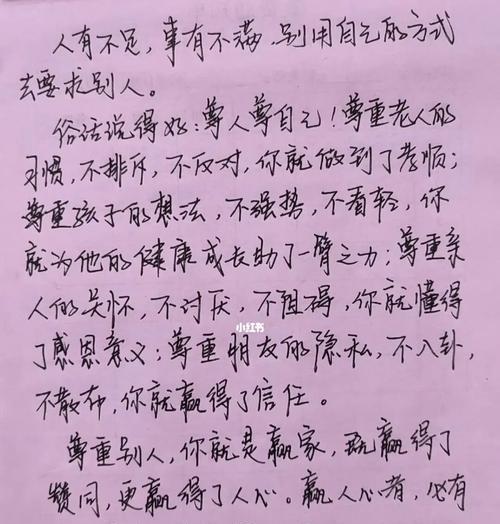 人有不足，事有不满，别用自己的方式
去要求别人。
俗话说得好：尊人尊自己！尊重老人的
习惯，不排斥，不反对，你就做到了孝顺；
尊重孩子的想法，不强势，不看轻，你
就为他的健康成长助了一臂之力；尊重亲
人的关怀，不讨厌，不阻碍，你就懂得
小红书
了感恩意义；尊重朋友的隐私，不八卦，
不散布，你就赢得了信任。
尊重别人，你就是赢家，既赢得了
赞同，更赢得了人心。赢人心者，必有